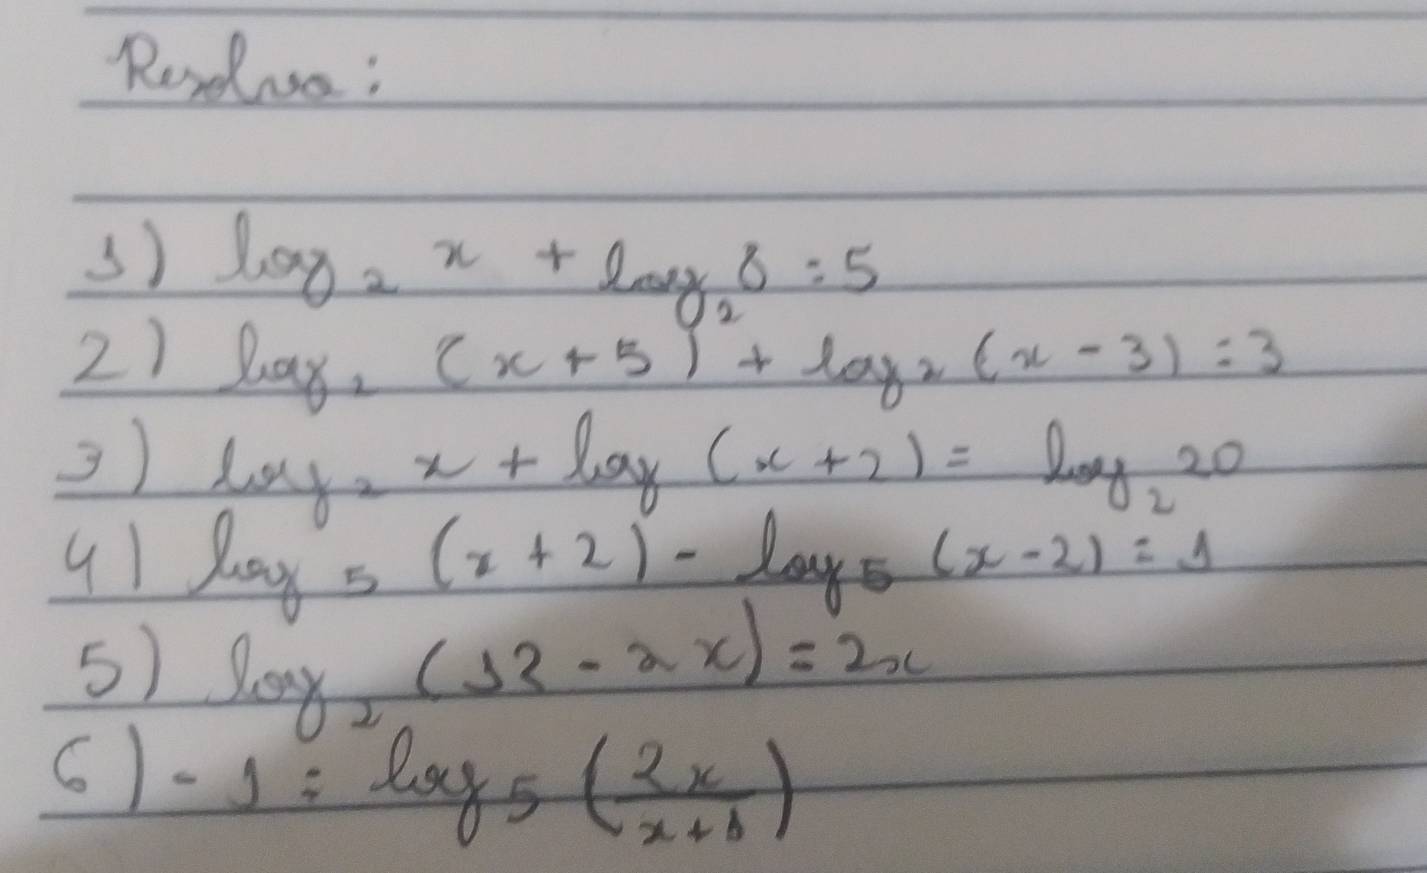 Resolva:
1) log₂ x + log₂ 8 = 5
2) log₂ (x + 5) + log₂ (x - 3) = 3
3) log₂ x + log (x + 2) = log₂ 20
4) log₅ (x + 2) - log₅ (x - 2) = 1
5) log₂ (12 - 2x) = 2x
6) -1 = log₅ (2x/x+1)